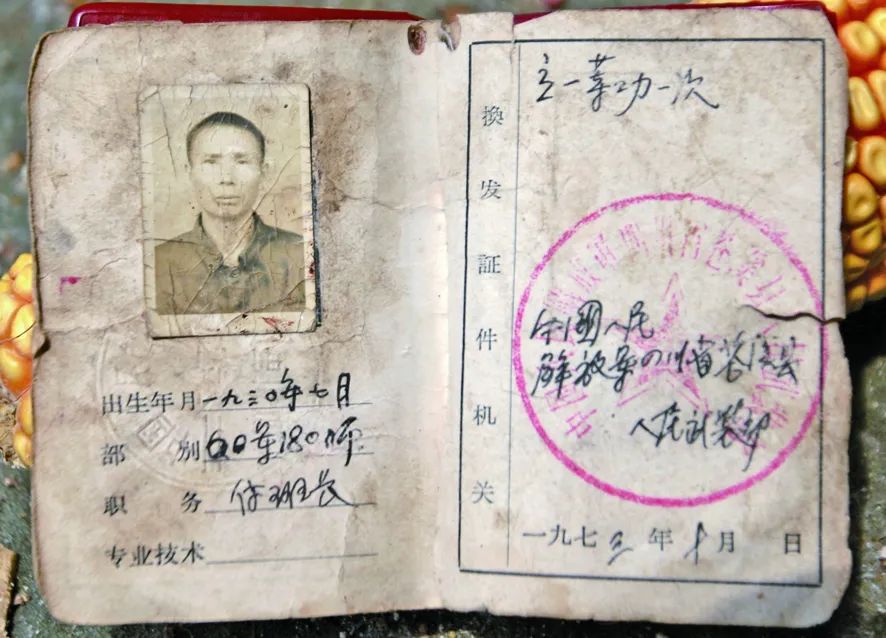 出生年月 一九三〇年七月
部别 60軍180师
职务 付班长
专业技术
換发証件机关
立一等功一次
中國人民
解放軍四川省苍溪县
人民武装部
一九七三年十月 日